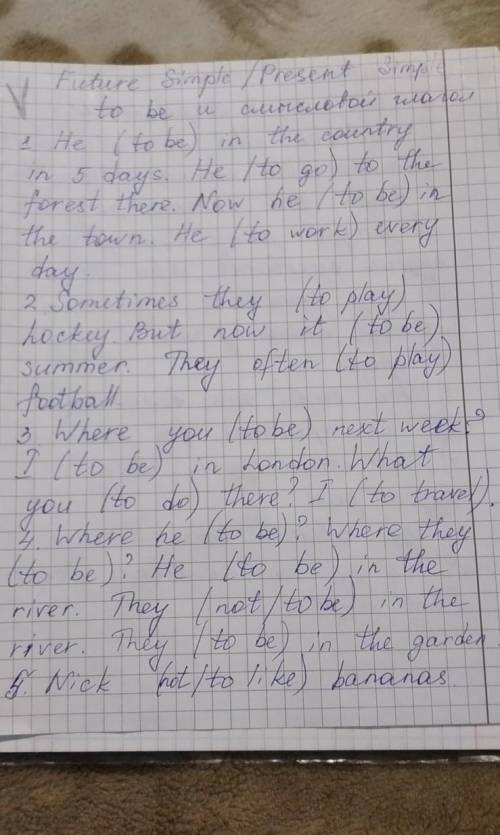 V Future Simple/Present Simple
to be и смысловой глагол
1 He (to be) in the country
in 5 days. He (to go) to the
forest there. Now he (to be) in
the town. He (to work) every
day.
2 Sometimes they (to play)
hockey But now it (to be)
summer. They often (to play)
football
3 Where you (to be) next week?
I (to be) in London. What
you (to do) there? I (to travel).
4. Where he (to be)? Where they
(to be)? He (to be) in the
river. They (not/to be) in the
river. They (to be) in the garden
5. Nick not/to like) bananas.